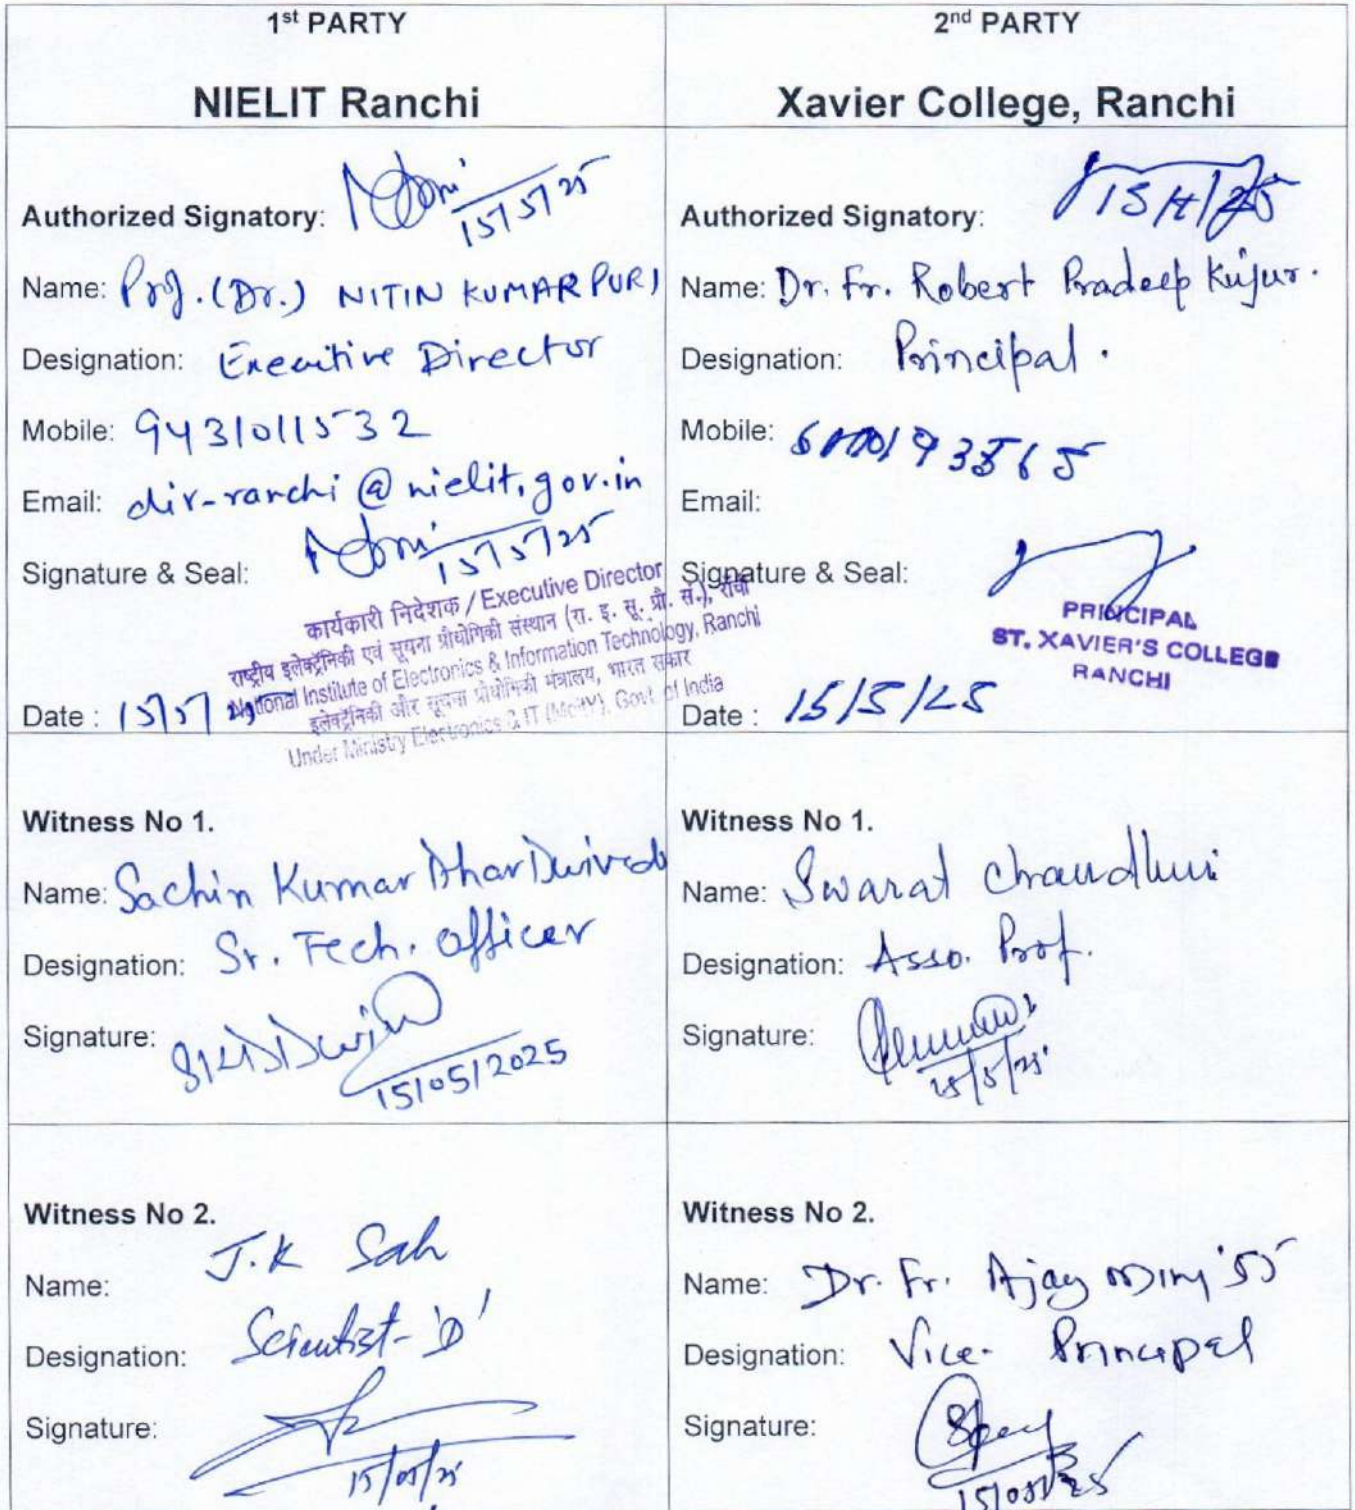 1st PARTY
NIELIT Ranchi
Authorized Signatory: 15/5/25
Name: Prof. (Dr.) NITIN KUMAR PURI
Designation: Executive Director
Mobile: 9431011532
Email: dir-ranchi@nielit.gov.in
Signature & Seal: 15/5/25
कार्यकारी निदेशक / Executive Director
राष्ट्रीय इलेक्ट्रॉनिकी एवं सूचना प्रौद्योगिकी संस्थान (रा. इ. सू. प्रौ. सं.), राँची
National Institute of Electronics & Information Technology, Ranchi
इलेक्ट्रॉनिकी और सूचना प्रौद्योगिकी मंत्रालय, भारत सरकार
Under Ministry Electronics & IT (MeitY), Govt. of India
Date : 15/5/25
2nd PARTY
Xavier College, Ranchi
Authorized Signatory:
Name: Dr. Fr. Robert Pradeep Kujur.
Designation: Principal.
Mobile:
Email:
Signature & Seal:
PRINCIPAL
ST. XAVIER'S COLLEGE
RANCHI
Date : 15/5/25
Witness No 1.
Name: Sachin Kumar Dhar Dwivedi
Designation: Sr. Tech. Officer
Signature:
15/05/2025
Witness No 1.
Name: Swarat Chaudhuri
Designation: Asso. Prof.
Signature:
15/5/25
Witness No 2.
Name: J.K Sah
Designation: Scientist-'D'
Signature:
15/05/25
Witness No 2.
Name: Dr. Fr. Ajay
Designation: Vice- Principal
Signature:
15/05/25